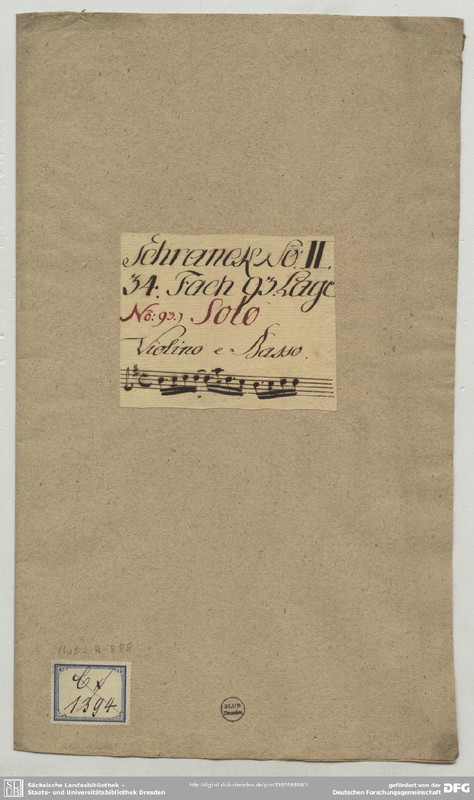 Schranck No: II.
34. Fach 93. Lage
No: 93.) Solo
Violino e Basso.
Mus. 2-R-8,88
Cx
1394
SLUB
Dresden
Sächsische Landesbibliothek –
Staats- und Universitätsbibliothek Dresden
gefördert von der
Deutschen Forschungsgemeinschaft
DFG